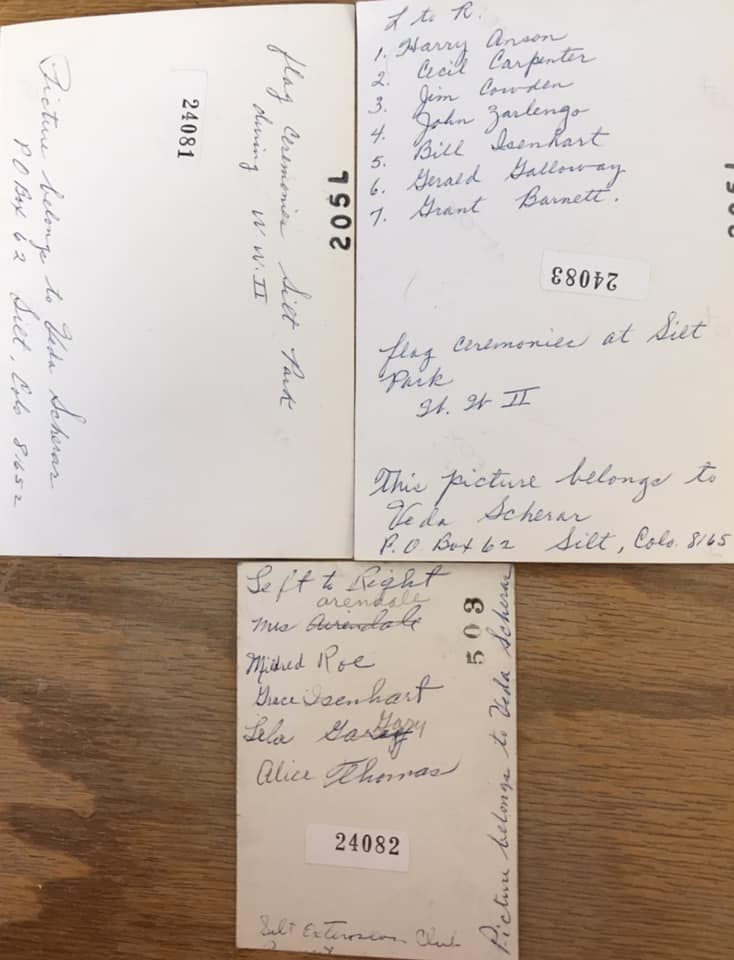 flag ceremonies Silt Park
during W W. II
24081
Picture belongs to Veda Scherar
P O Box 62 Silt, Colo 81652
1502
L to R.
1. Harry Anson
2. Cecil Carpenter
3. Jim Cowden
4. John Zarlengo
5. Bill Isenhart
6. Gerald Galloway
7. Grant Barnett.
24083
flag ceremonies at Silt
Park
W. W II
This picture belongs to
Veda Scherar
P. O Box 62 Silt, Colo. 8165
Left to Right
arendale
Mrs
Mildred Roe
Grace Isenhart
Lela Gary
Alice Thomas
24082
503
Picture belongs to Veda Scherar
Silt Extension Club